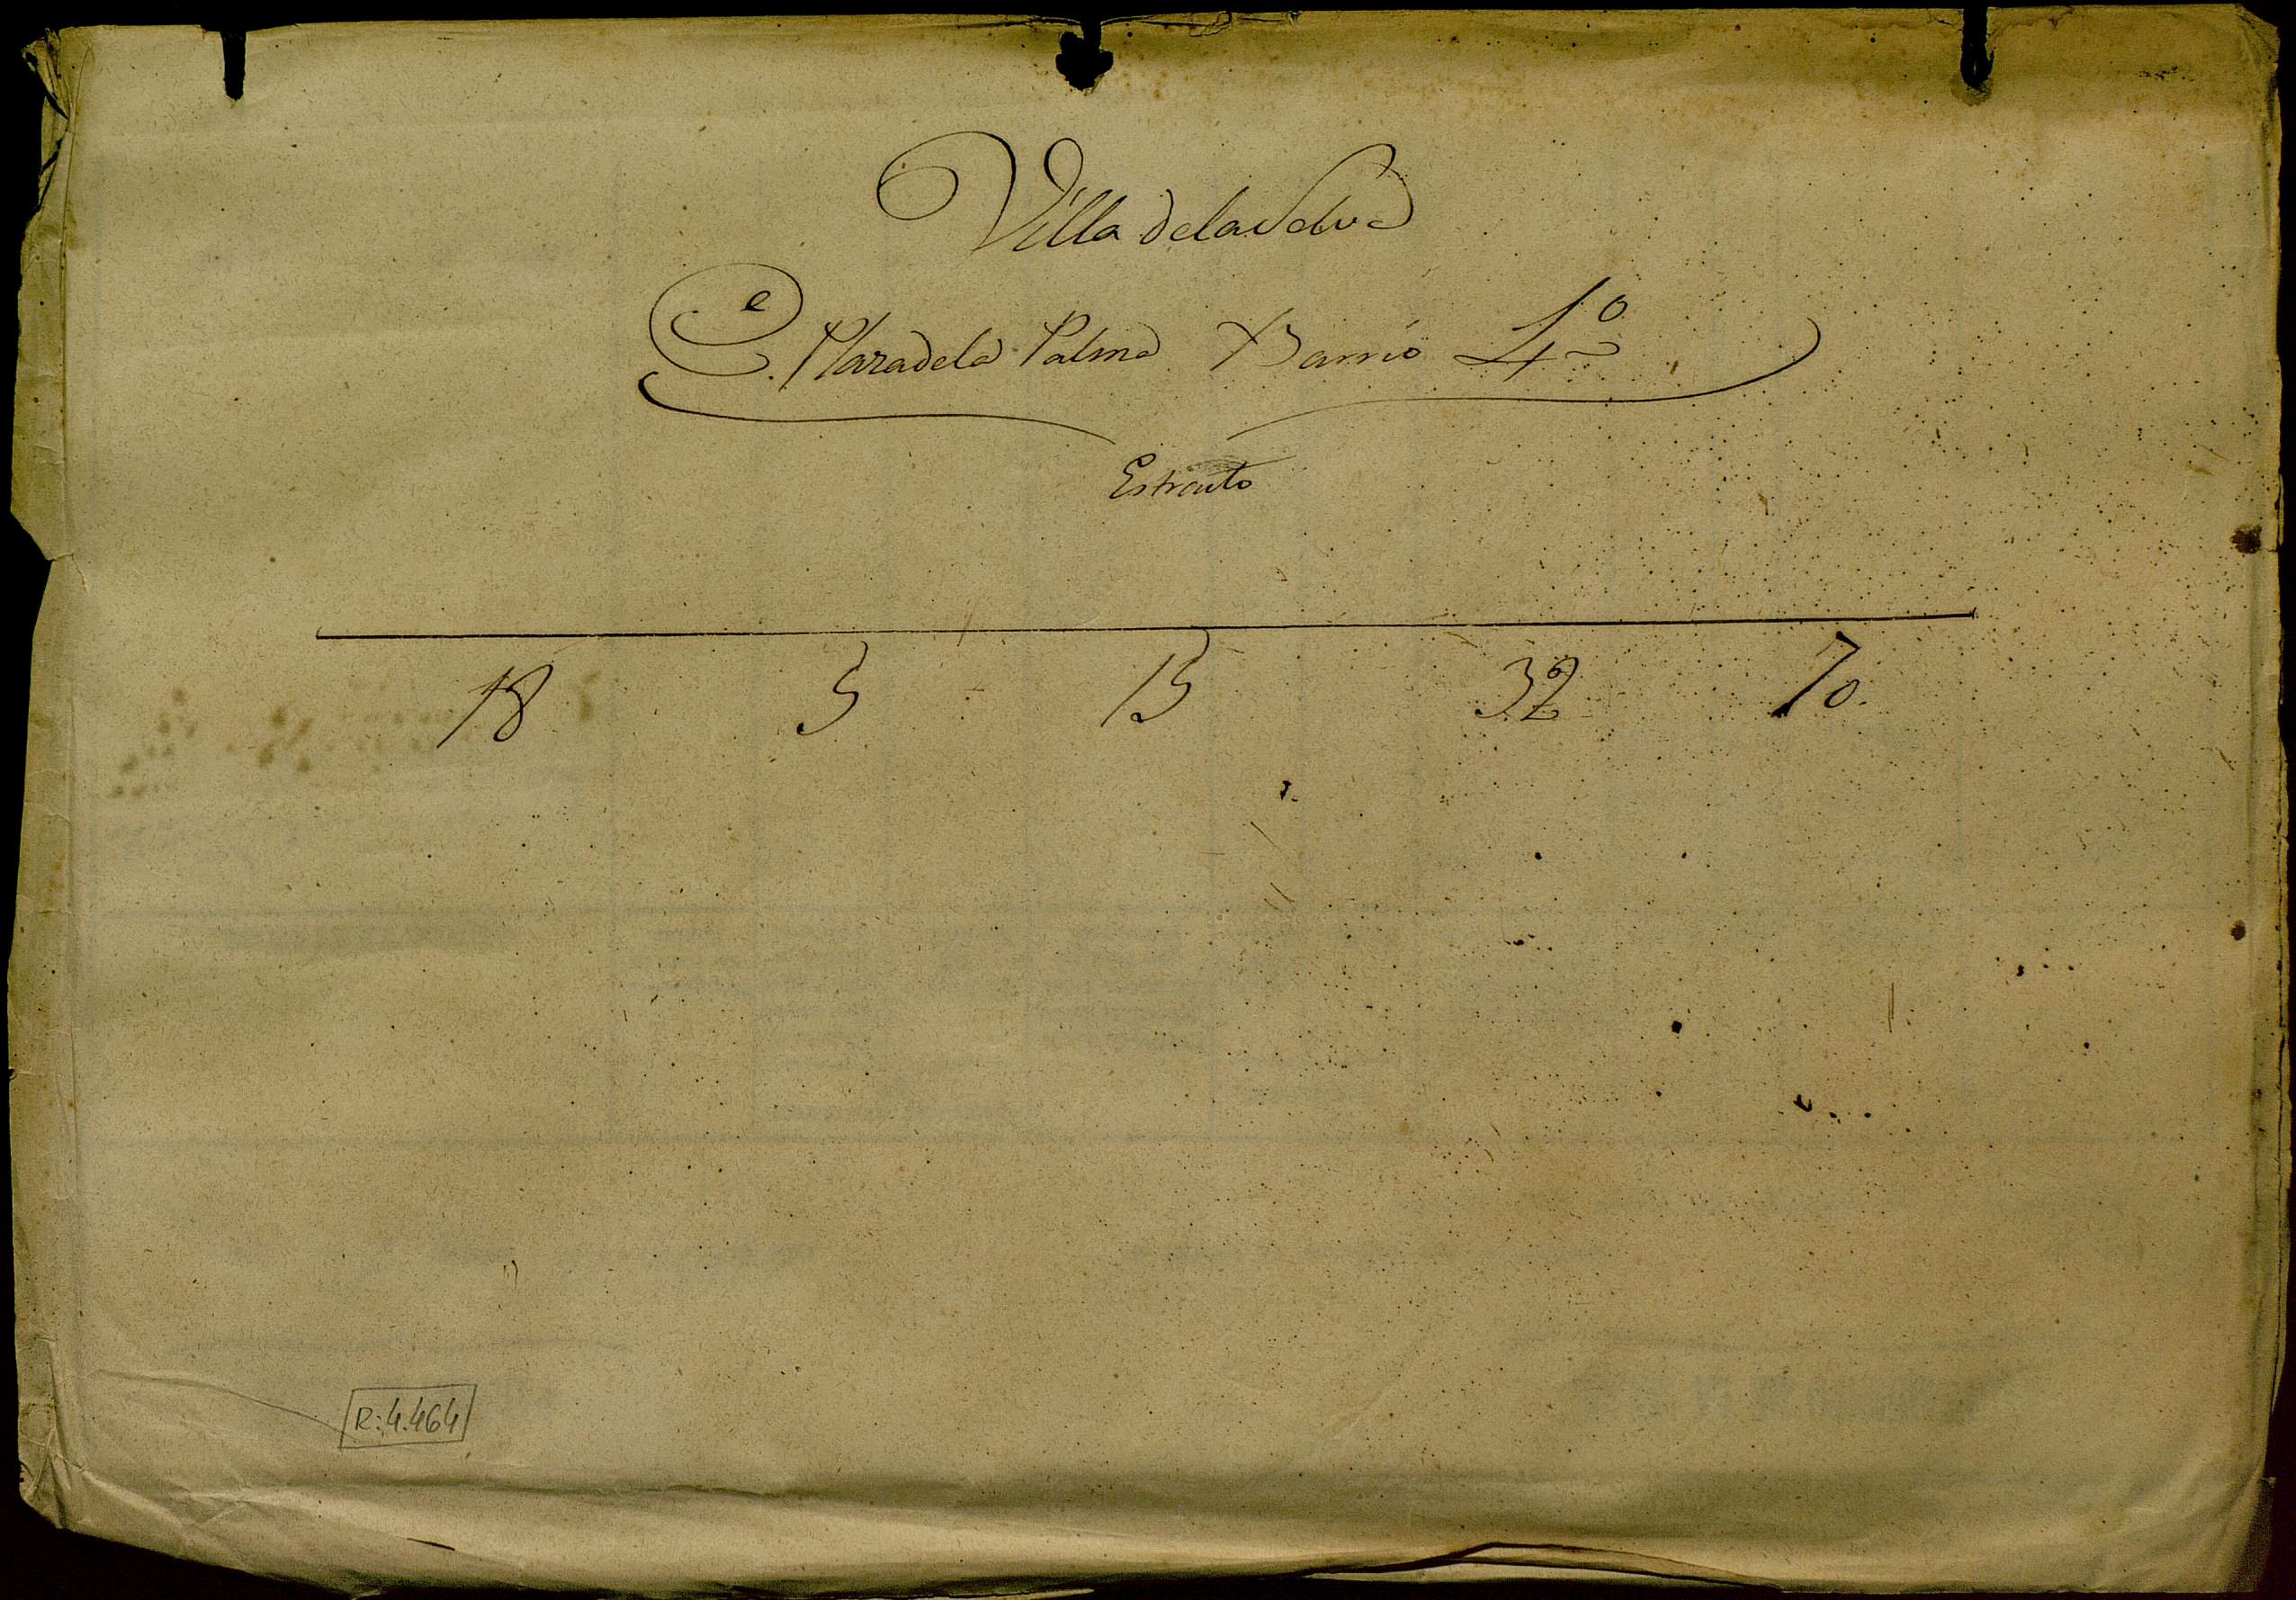 Villa dela Selva
C.e Plaza dela Palma Barrio 4º
Estracto
18 5 15 32 70
R: 4.464